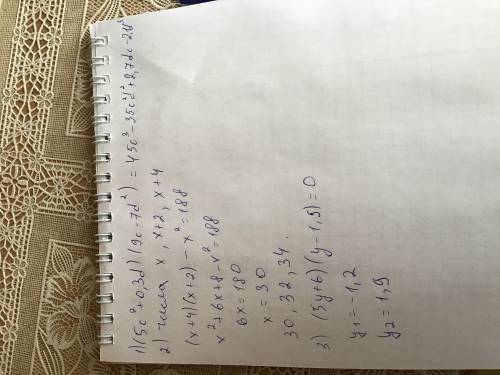 1) (5c²+0,3d)(9c-7d²) = 45c³-35c²d²+2,7dc-2,1d³
2) числа x, x+2, x+4
(x+4)(x+2) - x² = 188
x²+6x+8-x²=188
6x=180
x = 30
30, 32, 34.
3) (5y+6)(y-1,9)=0
y₁=-1,2
y₂=1,9